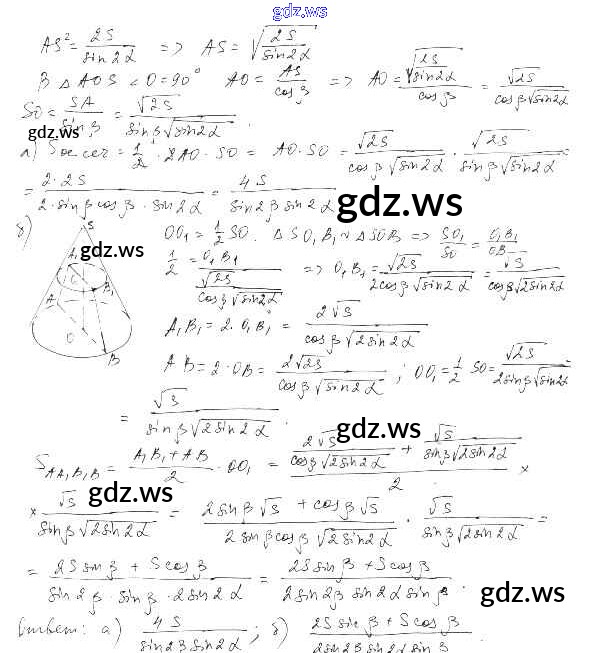 gdz.ws
AS² = 2S/sin2α => AS = √(2S/sin2α)
В ΔAOS ∠O=90° AO = AS/cosβ => AO = √(2S/sin2α)/cosβ = √2S/(cosβ√sin2α)
SO = SA/sinβ = √2S/(sinβ√sin2α).
gdz.ws
а) Sос.сеч = 1/2 · 2AO · SO = AO · SO = √2S/(cosβ√sin2α) · √2S/(sinβ√sin2α) =
= 2·2S/(2·sinβcosβ·sin2α) = 4S/(sin2βsin2α)
gdz.ws
б) OO₁ = 1/2 SO. ΔSO₁B₁ ~ ΔSOB => SO₁/SO = O₁B₁/OB
S A₁ B₁ A O B
gdz.ws
1/2 = O₁B₁/(√2S/(cosβ√sin2α)) => O₁B₁ = √2S/(2cosβ√sin2α) = √S/(cosβ√2sin2α)
A₁B₁ = 2·O₁B₁ = 2√S/(cosβ√2sin2α)
AB = 2·OB = 2√2S/(cosβ√sin2α); OO₁ = 1/2 SO = √2S/(2sinβ√sin2α)
= √S/(sinβ√2sin2α).
gdz.ws
S_AA₁B₁B = (A₁B₁+AB)/2 · OO₁ = (2√S/(cosβ√2sin2α) + √S/(sinβ√2sin2α))/2 ×
gdz.ws
× √S/(sinβ√2sin2α) = (2sinβ√S + cosβ√S)/(2sinβcosβ√2sin2α) · √S/(sinβ√2sin2α) =
= (2Ssinβ + Scosβ)/(sin2β·sinβ·2sin2α) = (2Ssinβ + Scosβ)/(2sin2βsin2αsinβ).
gdz.ws
Ответ: а) 4S/(sin2βsin2α); б) (2Ssinβ + Scosβ)/(2sin2βsin2αsinβ).